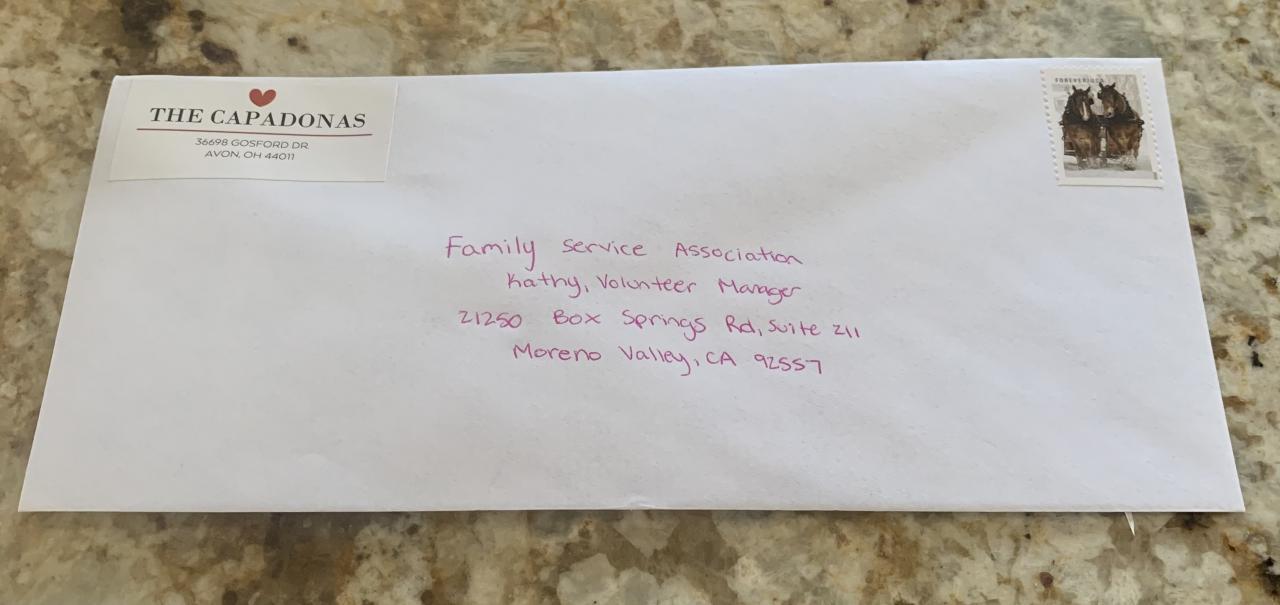 THE CAPADONAS
36698 GOSFORD DR
AVON, OH 44011
FOREVER/USA
Family Service Association
Kathy, Volunteer Manager
21250 Box Springs Rd, Suite 211
Moreno Valley, CA 92557